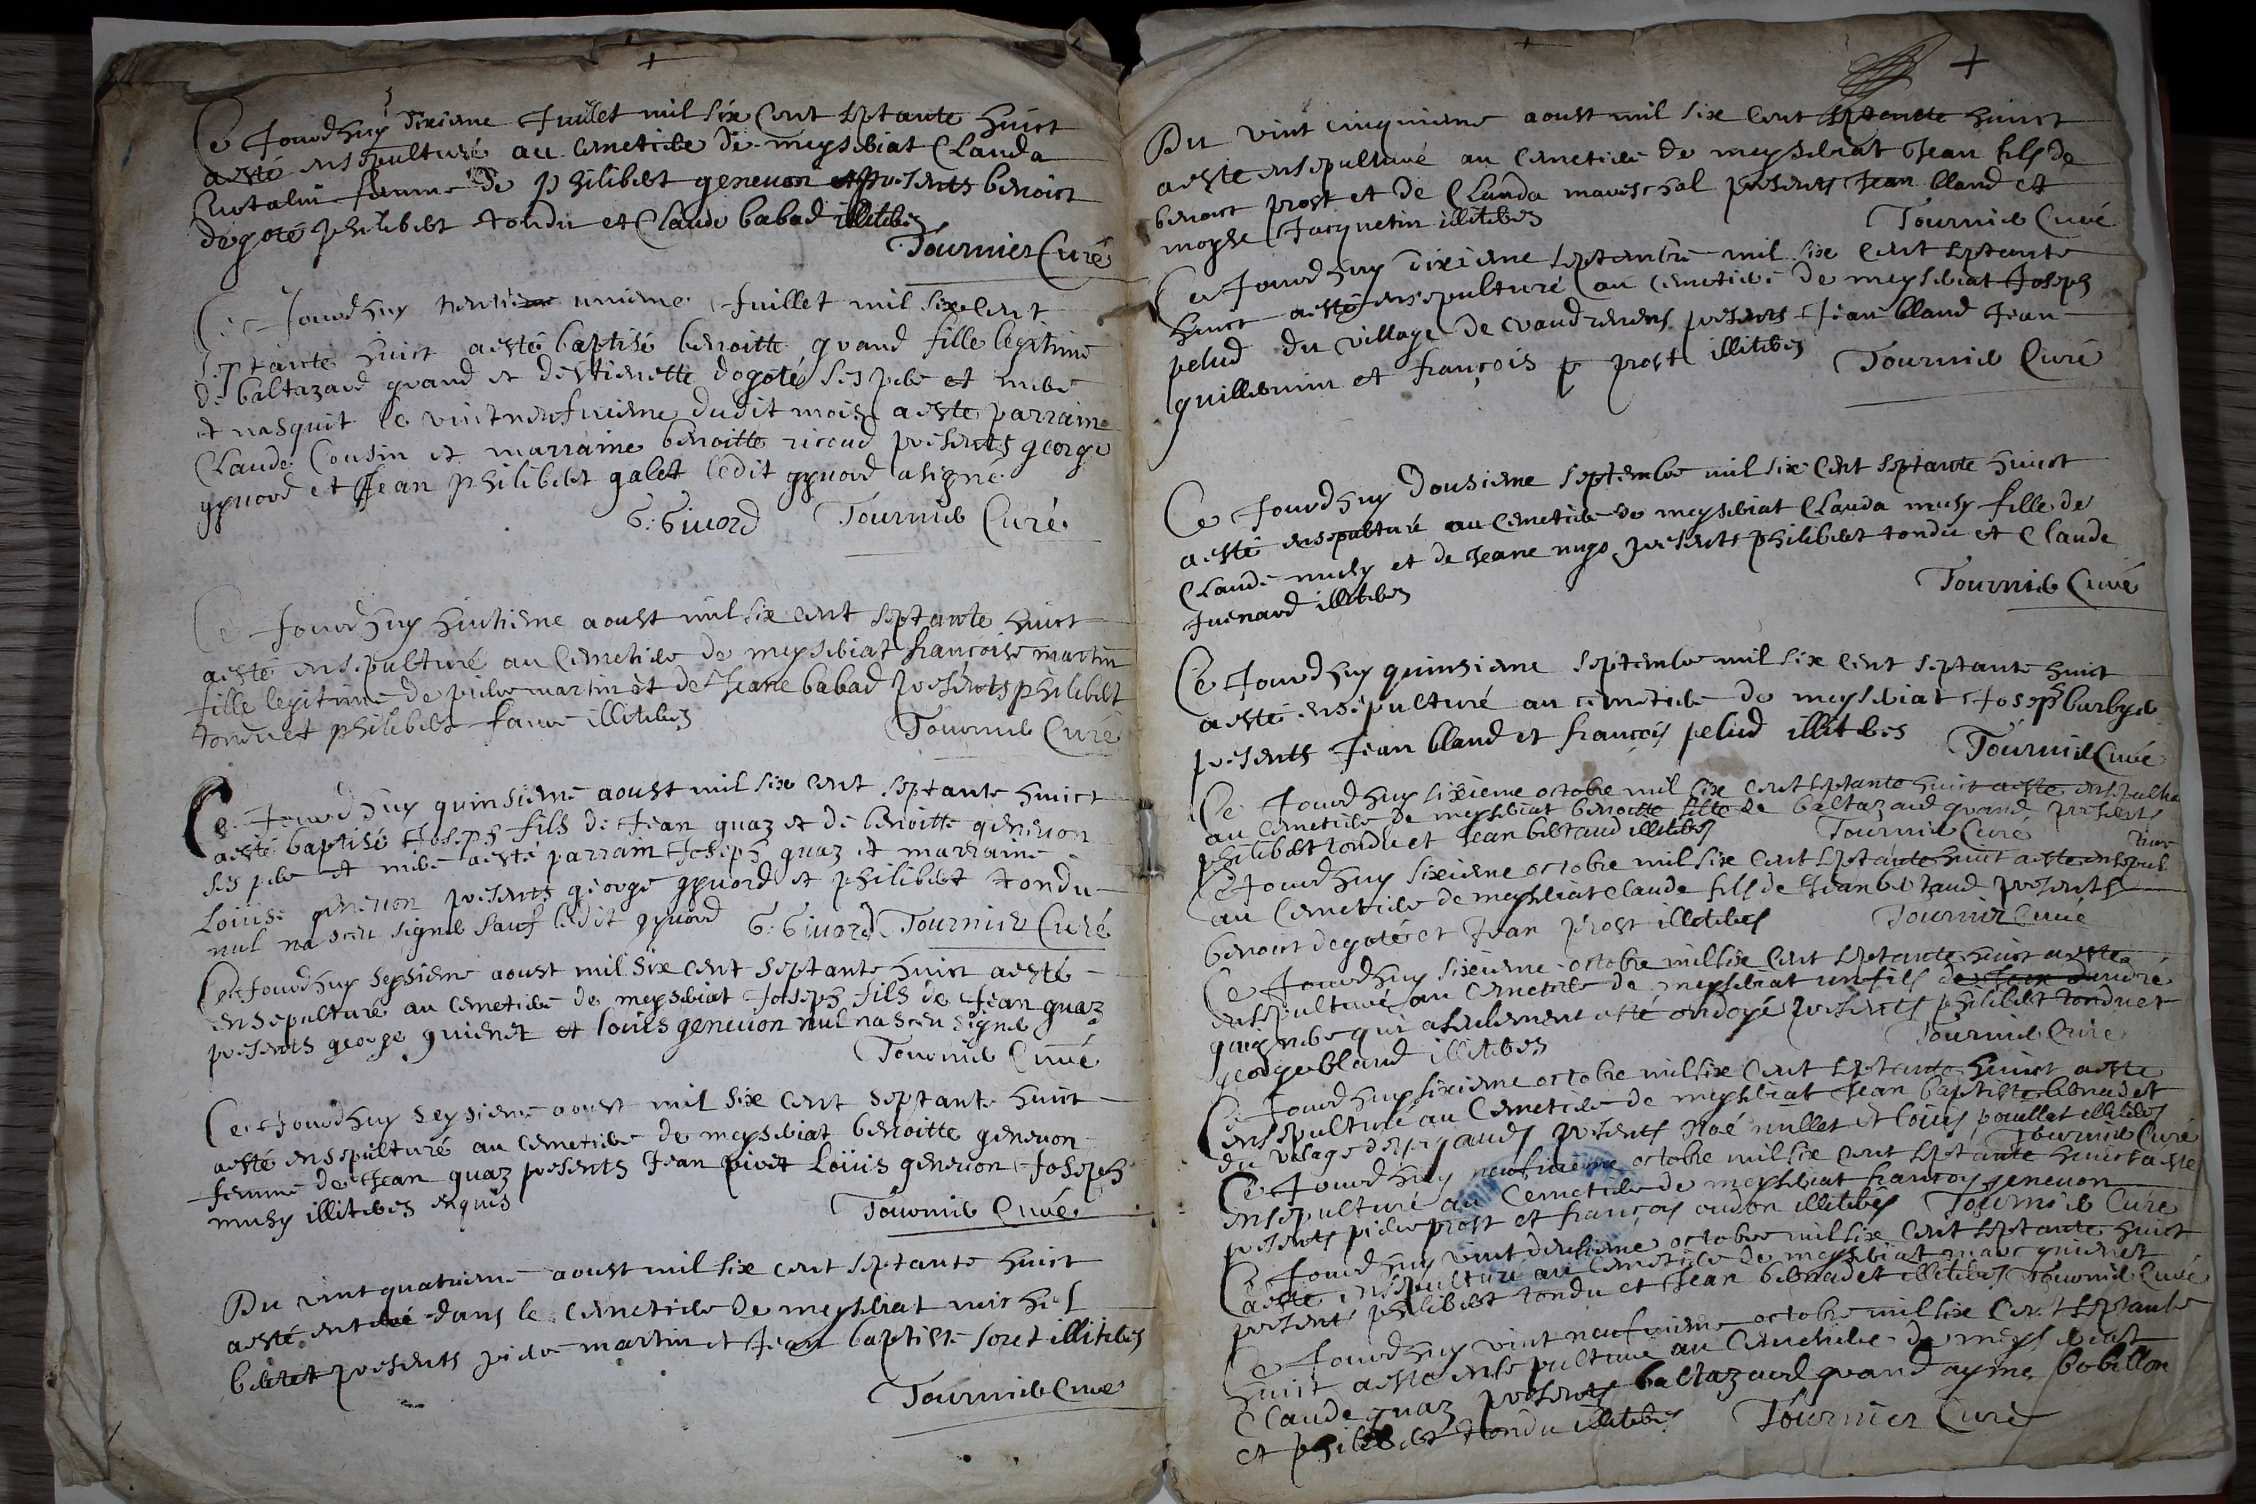 Ce Jourdhuy dixieme Juillet mil six cent septante huict
a esté ensepulturé au cemetiere de meyseriat Clauda
femme de philibert geneuon et presents benoict
dogoté philibert tondu et Claude babad illiteres
Tournier Curé
Ce Jourdhuy unieme Juillet mil six cent
septante huict a esté baptisé benoitte quand fille legitime
de baltazard quand et destienette dogoté ses pere et mere
et nasquit le vintneufuieme dudit mois a esté parrain
Claude Cousin et marraine benoitte ricoud presents george
gyuord et Jean philibert galet ledit gyuord a signé
G: Giuord Tournier Curé
Ce Jourdhuy huitieme aoust mil six cent septante huict
a esté ensepulturé au cemetiere de meyseriat francoise martin
fille legitime de pierre martin et de Jeane babad presents philibert
tondu et philibert faure illiteres
Tournier Curé
Ce Jourdhuy quinsieme aoust mil six cent septante huict
a esté baptisé Joseph fils de Jean quaz et de benoitte geneuon
ses pere et mere a esté parrain Joseph quaz et marraine
Louise geneuon presents george gyuord et philibert tondu
nul na sceu signer sauf ledit gyuord G: Giuord Tournier Curé
Ce Jourdhuy seysieme aoust mil six cent septante huict a esté
ensepulturé au cemetiere de meyseriat Joseph fils de Jean quaz
presents george guienet et louis geneuon nul na sceu signer
Tournier Curé
Ce Jourdhuy seysieme aoust mil six cent septante huict
a esté ensepulturé au cemetiere de meyseriat benoitte geneuon
femme de Jean quaz presents Jean pivet Loüis geneuon Joseph
musy illiteres enquis
Tournier Curé
Du vint quatrieme aoust mil six cent septante huict
a esté enterré dans le cemetiere de meyseriat michel
beret presents pierre martin et Jean baptiste soret illiteres
Tournier Curé
Du vint cinquieme aoust mil six cent septante huict
a este ensepulturé au cemetiere de meyseriat Jean fils de
benoict prost et de Clauda mareschal presents Jean bland et
moyse Jacquetin illiteres
Tournier Curé
Ce Jourdhuy dixieme septembre mil six cent septante
huict a esté ensepulturé au cemetiere de meyseriat Joseph
pelud du village de presents Jean bland Jean
guillermin et françois p prost illiteres Tournier Curé
Ce Jourdhuy dousieme septembre mil six cent septante huict
a esté ensepulturé au cemetiere de meyseriat Clauda musy fille de
Claude musy et de Jeane nugo presents philibert tondu et Claude
Juenard illiteres
Tournier Curé
Ce Jourdhuy quinsieme septembre mil six cent septante huict
a esté ensepulturé au cemetiere de meyseriat Joseph burbyer
presents Jean bland et françois pelud illiteres
Tournier Curé
Ce Jourdhuy sixieme octobre mil six cent septante huict a este
au cemetiere de meyseriat benoitte fille de baltazard quand presents
philibert tondu et Jean bertaud illiteres Tournier Curé
Ce Jourdhuy sixieme octobre mil six cent septante huict a este ensepul
au cemetiere de meyseriat Claude fils de Jean bertaud presents
benoict degoté et Jean prost illiteres Tournier Curé
Ce Jourdhuy sixieme octobre mil six cent septante huict a este
ensepulturé au cemetiere de meyseriat un fils de
qui a seulement esté ondoyé presents philibert tondu et
george bland illiteres Tournier Curé
Ce Jourdhuy sixieme octobre mil six cent septante huict a este
ensepulturé au cemetiere de meyseriat Jean baptiste bernadet
du vilage presents Noé millet et louis paullet illiteres
Tournier Curé
Ce Jourdhuy neufuieme octobre mil six cent septante huict a este
ensepulturé au cemetiere de meyseriat françois geneuon
presents pierre prost et françois oudon illiteres Tournier Curé
Ce Jourdhuy vint deusieme octobre mil six cent septante huict
a este ensepulturé au cemetiere de meyseriat marc guienet
presents philibert tondu et Jean bernadet illiteres Tournier Curé
Ce Jourdhuy vint neufuieme octobre mil six cent septante
huict a esté ensepulturé au cemetiere de meyseriat
Claude quaz presents baltazard quand ayme bobillon
et philibert tondu illiteres Tournier Curé